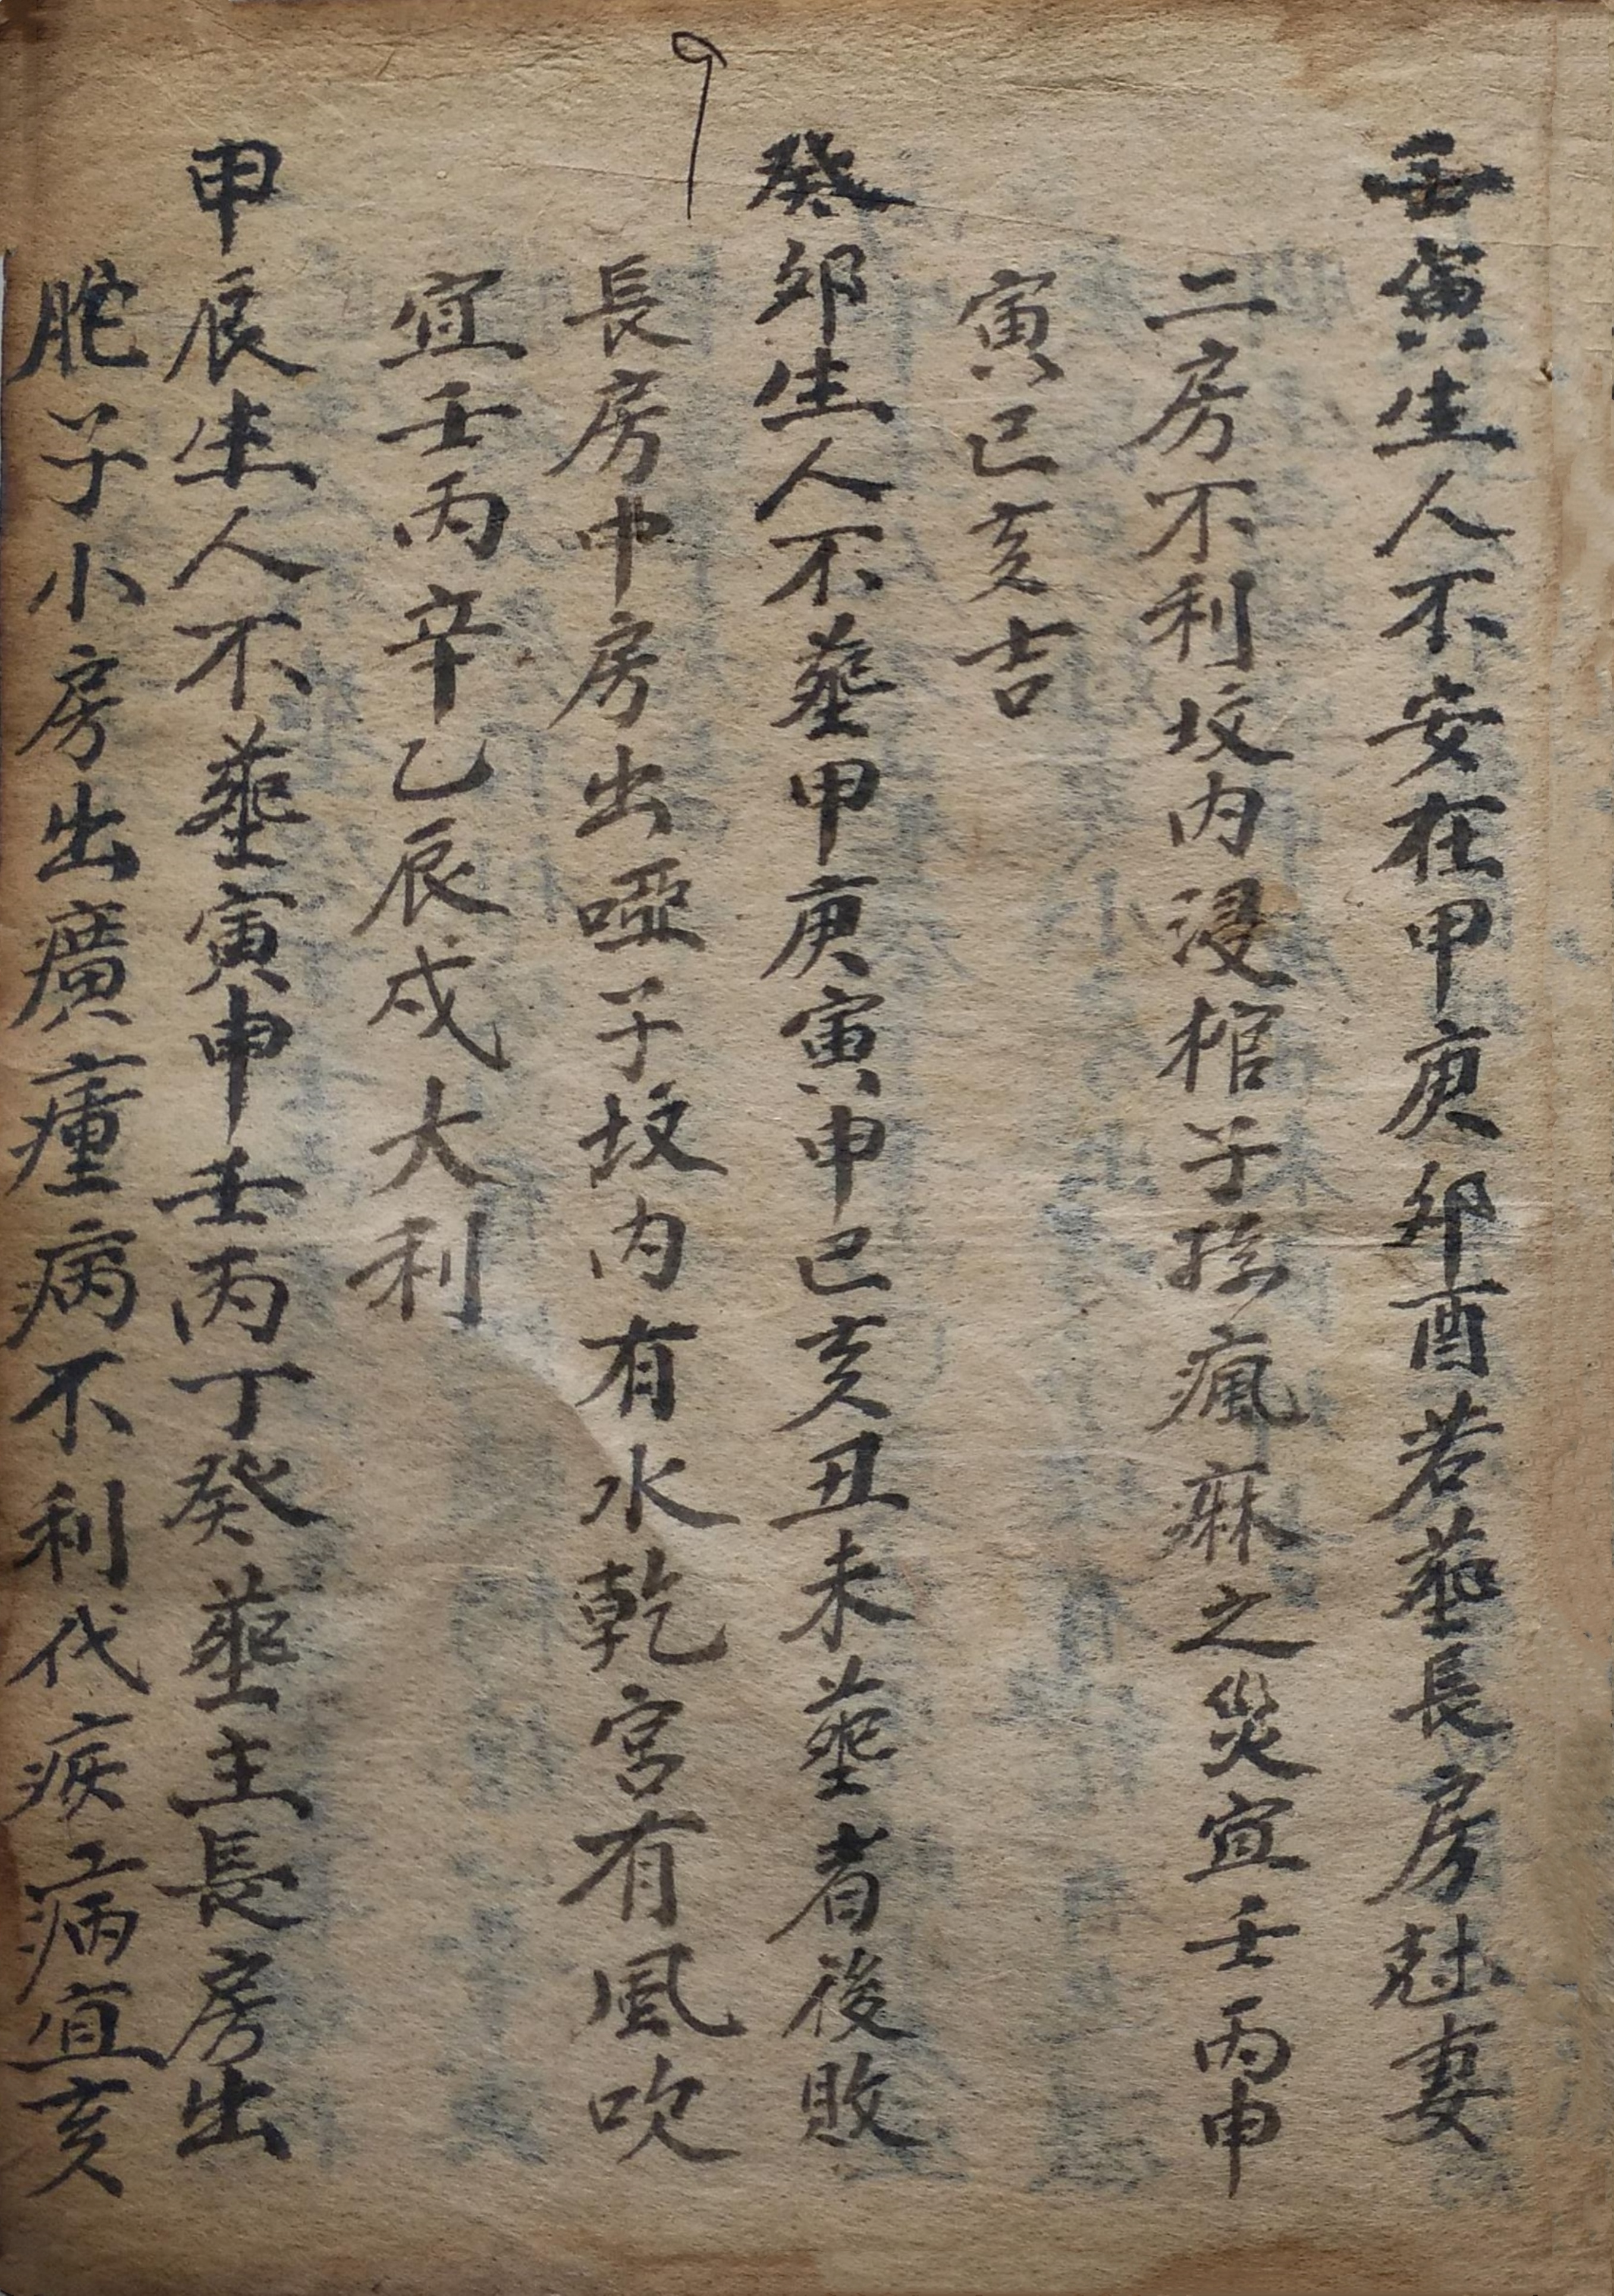 壬寅生人不安在甲庚卯酉若塟長房尅妻
二房不利坟内浸棺子孫瘋痳之災宜壬丙申
寅已亥吉
癸卯生人不塟甲庚寅申已亥丑未塟者後敗
長房中房出啞子坟内有水乾宫有風吹
宜壬丙辛乙辰戍大利
甲辰生人不塟寅申壬丙丁癸塟主長房出
駝子小房出癀瘇病不利代疾病宜亥